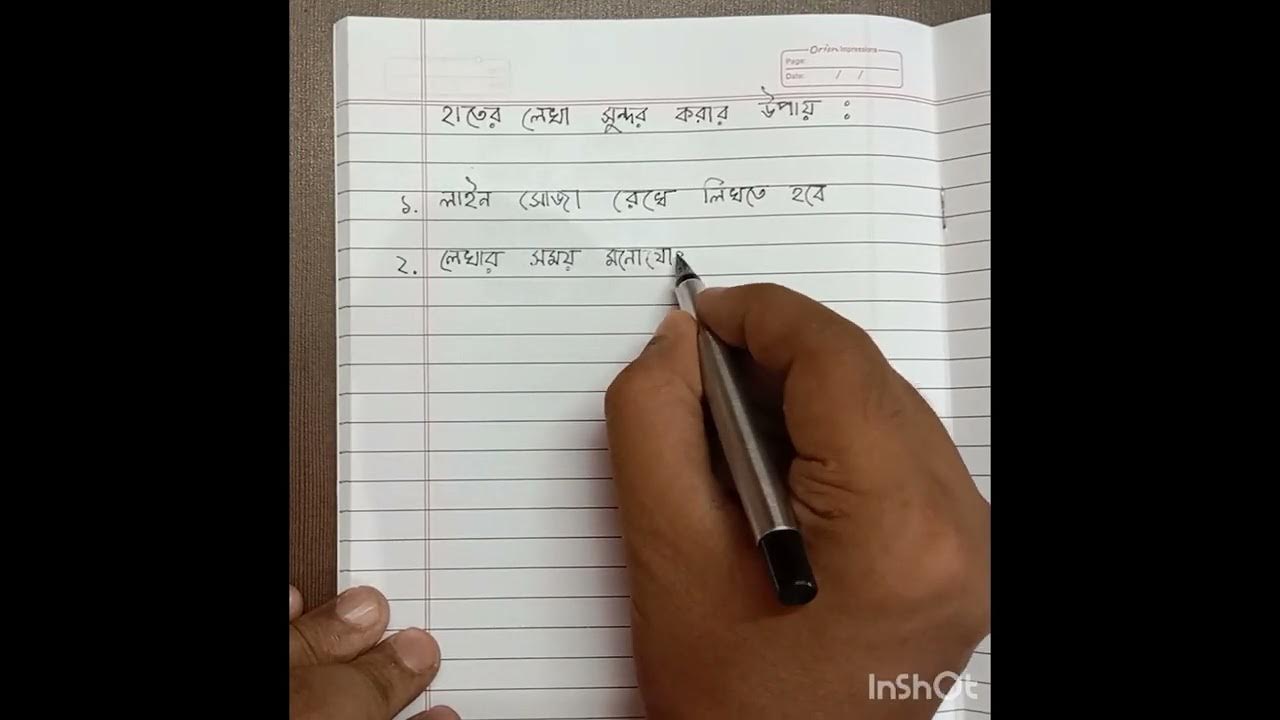 Orien Impressions
Page:
Date: / /
হাতের লেখা সুন্দর করার উপায় :
১. লাইন সোজা রেখে লিখতে হবে
২. লেখার সময় মনোযো
InShOt